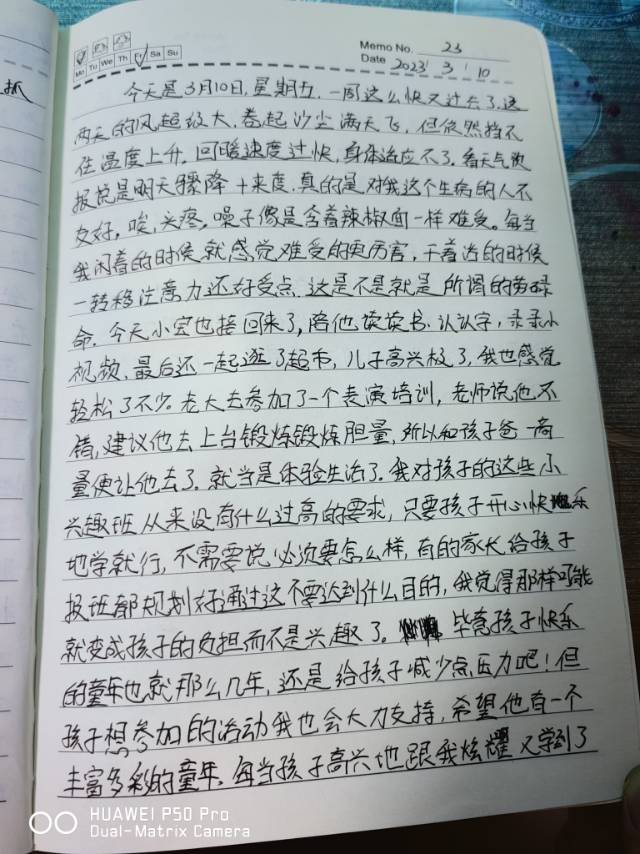 抓
Mo Tu We Th Fr Sa Su
Memo No. 23
Date 2023 3 10
今天是3月10日,星期五.一周这么快又过去了,这
两天的风超级大,卷起沙尘满天飞,但依然挡不
住温度上升.回暖速度过快,身体适应不了.看天气预
报说是明天骤降十来度.真的是对我这个生病的人不
友好,唉,头疼,嗓子像是含着辣椒面一样难受.每当
我闲着的时候就感觉难受的更厉害,干着活的时候
一转移注意力还好受点.这是不是就是所谓的劳碌
命.今天小宝也接回来了,陪他读读书.认认字,录录小
视频,最后还一起逛了超市,儿子高兴极了,我也感觉
轻松了不少.老大去参加了一个表演培训,老师说他不
错,建议他去上台锻炼锻炼胆量,所以和孩子爸一商
量便让他去了.就当是体验生活了.我对孩子的这些小
兴趣班从来没有什么过高的要求,只要孩子开心快乐
地学就行,不需要说必须要怎么样,有的家长给孩子
报班都规划好通过这个要达到什么目的,我觉得那样可能
就变成孩子的负担而不是兴趣了.毕竟孩子快乐
的童年也就那么几年,还是给孩子减少点压力吧!但
孩子想参加的活动我也会大力支持,希望他有一个
丰富多彩的童年.每当孩子高兴地跟我炫耀又学到了
HUAWEI P50 Pro
Dual-Matrix Camera